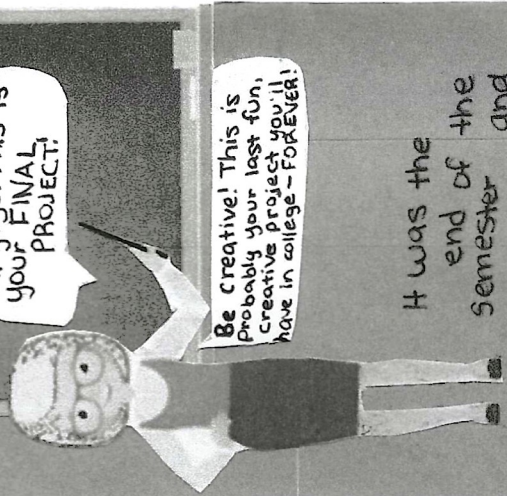 your FINAL
PROJECT!
Be creative! This is
Probably your last fun,
creative project you'll
have in college-FOREVER!
It was the
end of the
semester and